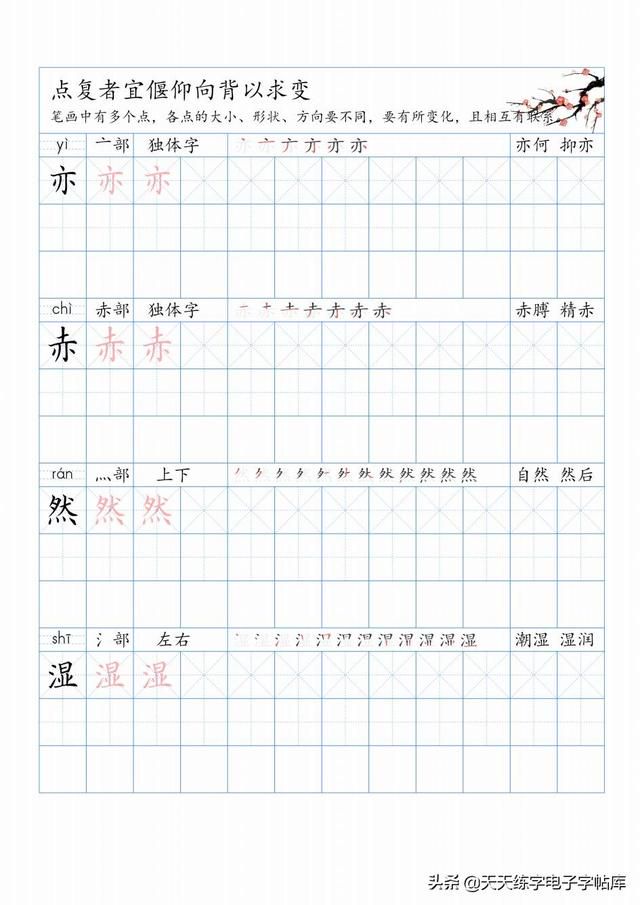 点复者宜偃仰向背以求变
笔画中有多个点，各点的大小、形状、方向要不同，要有所变化，且相互有联系。
yì 亠部 独体字 亦何 抑亦
亦 亦 亦
chì 赤部 独体字 赤膊 精赤
赤 赤 赤
rán 灬部 上下 自然 然后
然 然 然
shī 氵部 左右 潮湿 湿润
湿 湿 湿
头条 @天天练字电子字帖库